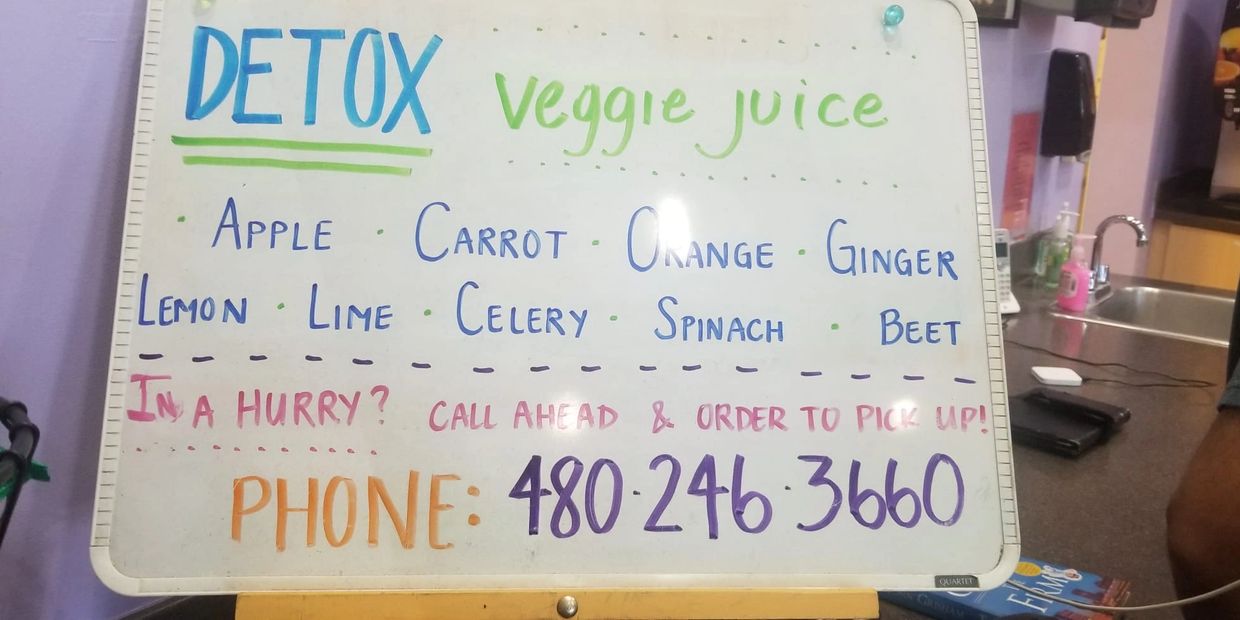 DETOX veggie juice
· APPLE · CARROT · ORANGE · GINGER
LEMON · LIME · CELERY · SPINACH · BEET
IN A HURRY? CALL AHEAD & ORDER TO PICK UP!
PHONE: 480·246·3660
QUARTET
FIRM